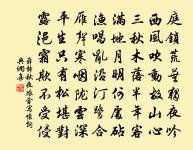 庭鎖荒蕪獨夜吟
西風吹動故山心
三秋木落半年客
滿地月明何處砧
漁唱亂沿汀鷺合
雁聲寒咽隴雲深
平生只有松堪對
露浥霜欺不受侵
秋夜旅舍寓懷詩詞
典網集